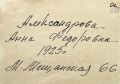 Александрова
Анна Федоровна
1925г.
М. Мещанская 66